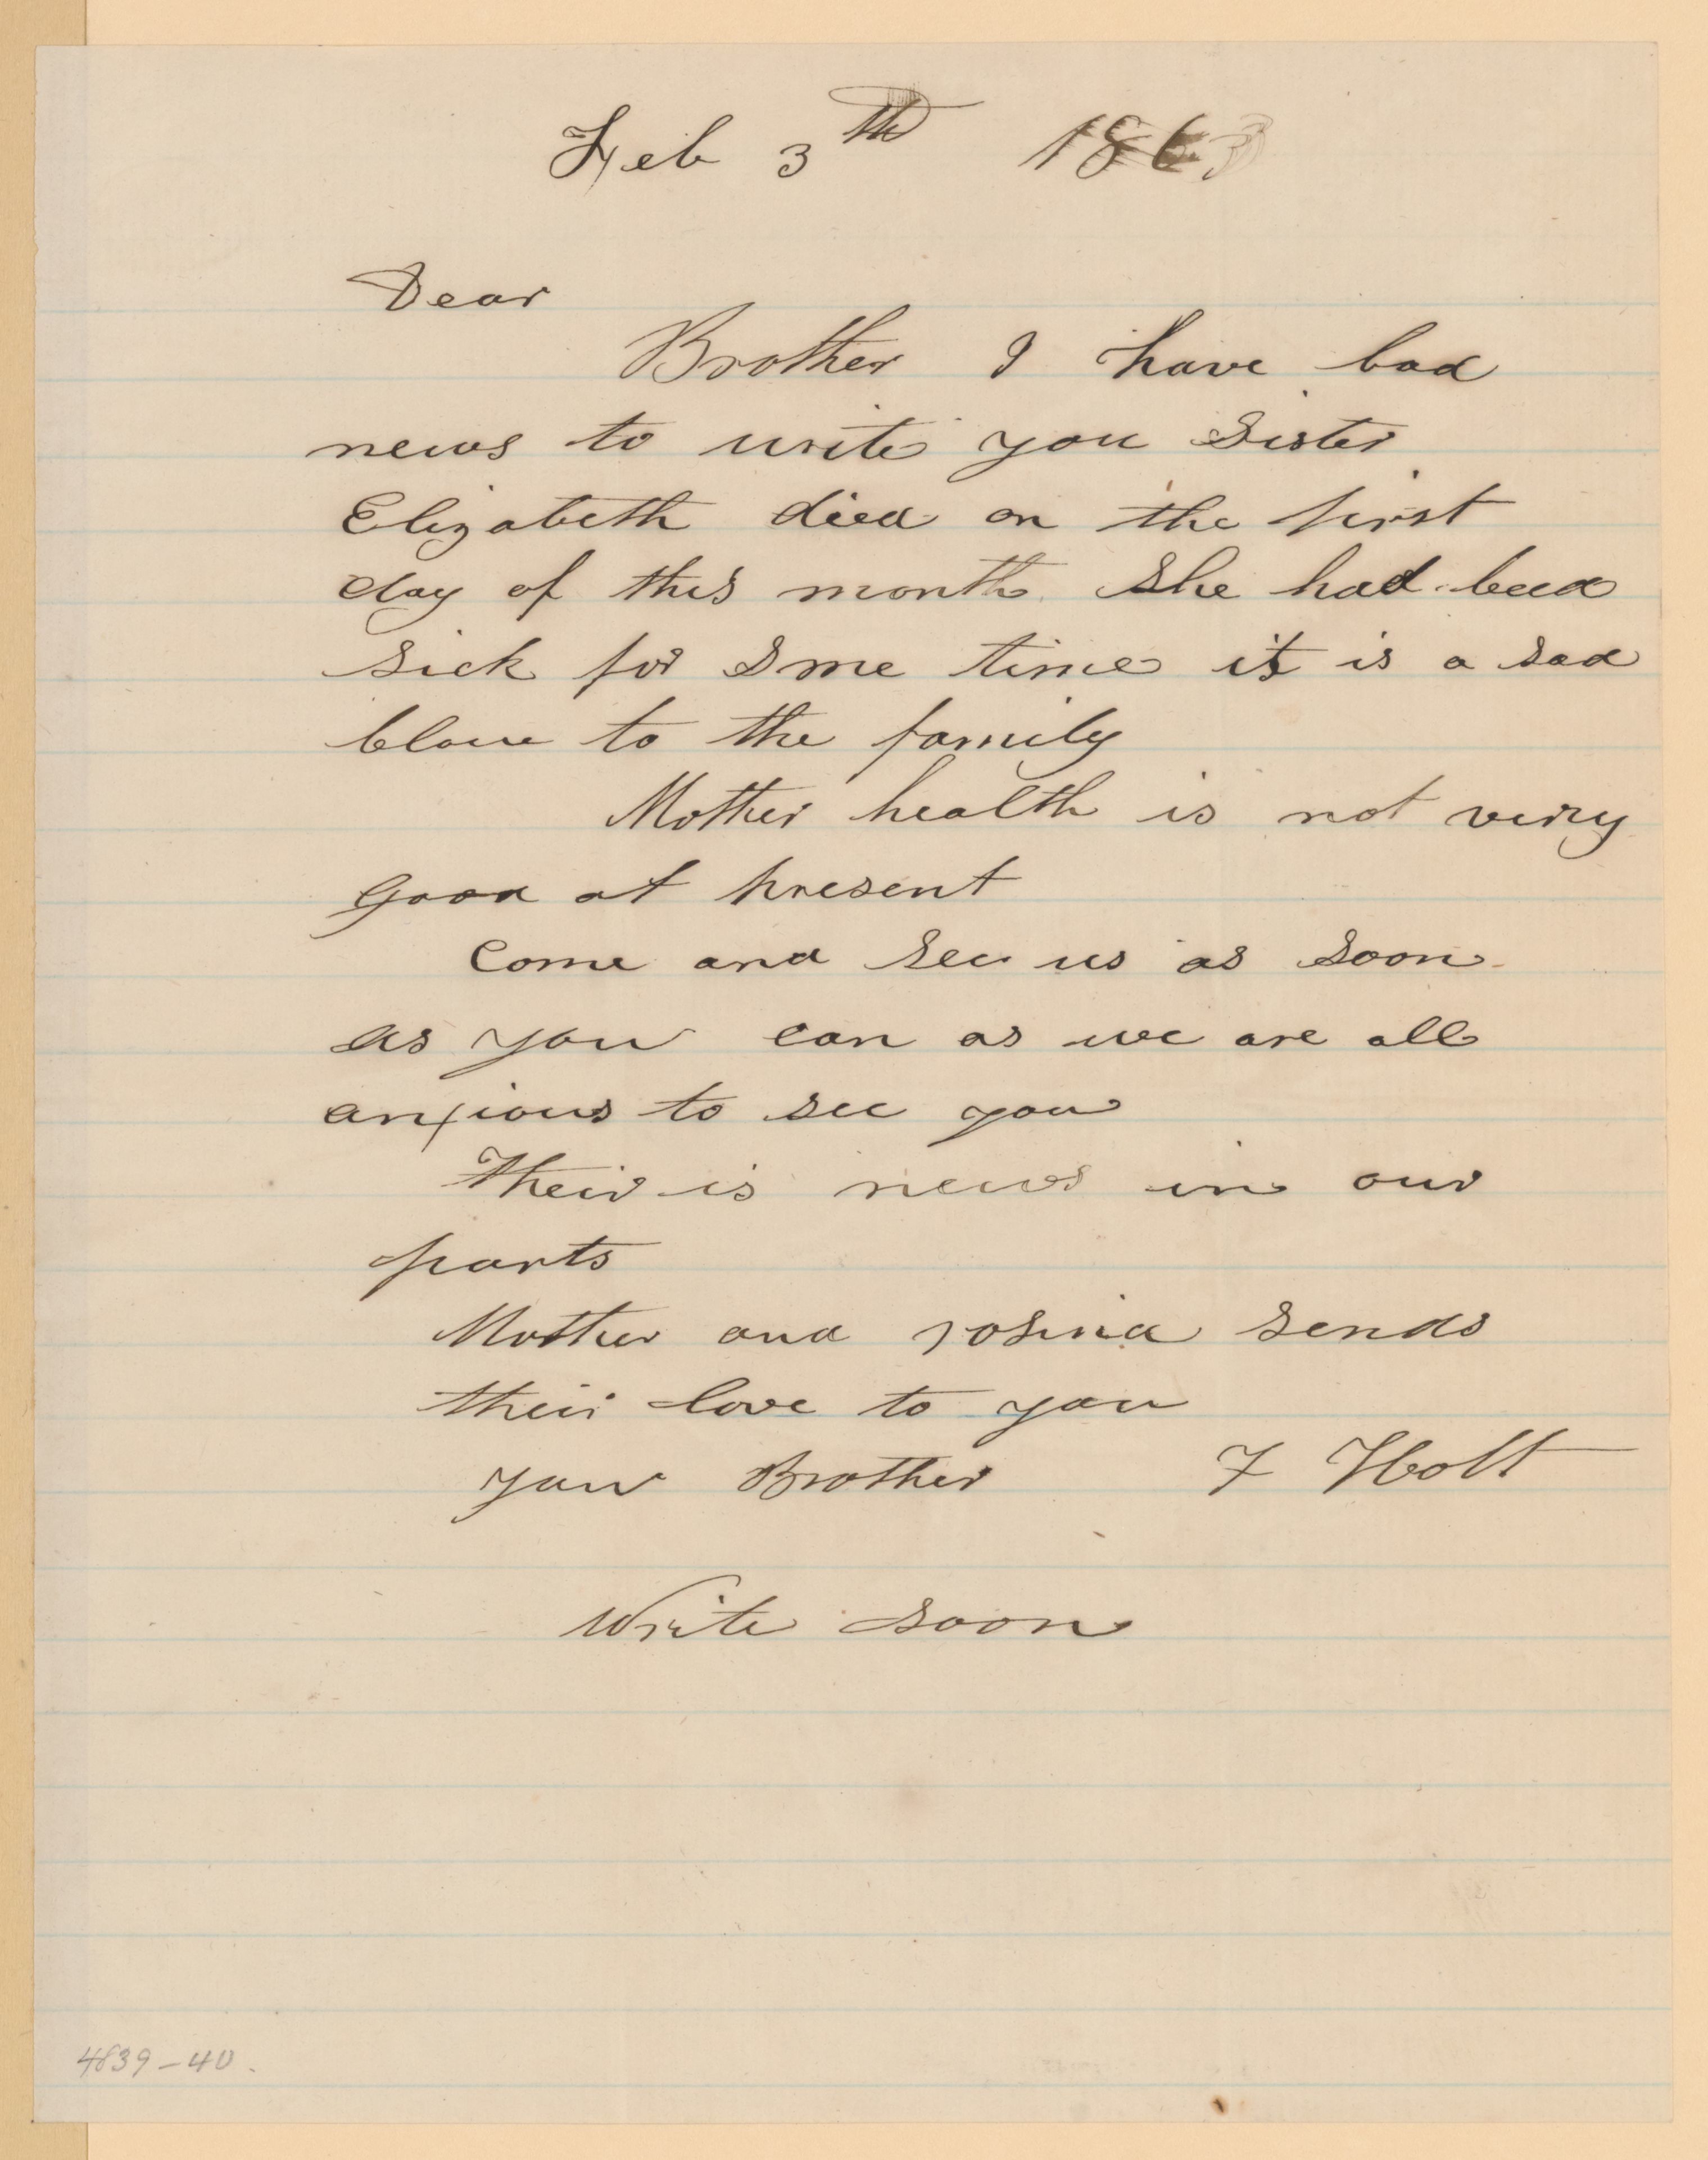 Feb 3th 1863
Dear
Brother I have bad
news to write you Sister
Elizabeth died on the first
day of this month She had beed
sick for Sme time it is a sad
blow to the family
Mother health is not very
good at present
Come and see us as soon
as you can as we are all
anxious to see you
Their is news in our
parts
Mother and rosina sends
their love to you
your Brother F Holt
Write soon
4839-40.